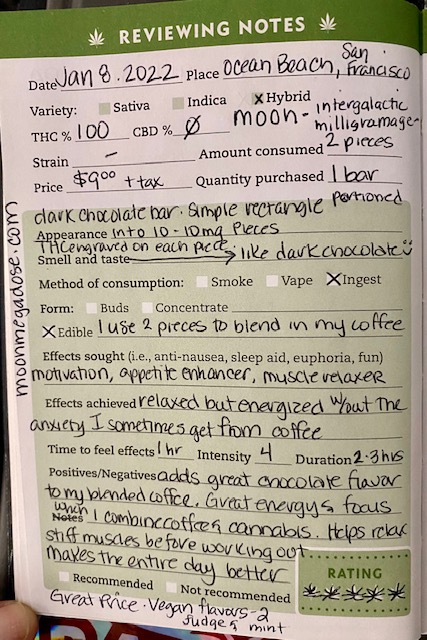 REVIEWING NOTES
Date Jan 8. 2022 Place Ocean Beach, San Francisco
Variety: Sativa Indica X Hybrid
THC % 100 CBD % Ø moon - intergalactic milligramage-
Strain - Amount consumed 2 pieces
Price $9⁰⁰ + tax Quantity purchased 1 bar
dark chocolate bar. Simple rectangle portioned
Appearance into 10 - 10mg Pieces
THC engraved on each piece.
Smell and taste → like dark chocolate
Method of consumption: Smoke Vape X Ingest
Form: Buds Concentrate
X Edible I use 2 pieces to blend in my coffee
Effects sought (i.e., anti-nausea, sleep aid, euphoria, fun)
motivation, appetite enhancer, muscle relaxer
Effects achieved relaxed but energized w/out the
anxiety I sometimes get from coffee
Time to feel effects 1 hr Intensity 4 Duration 2-3 hrs
Positives/Negatives adds great chocolate flavor
to my blended coffee. Great energy & focus
Notes when I combine coffee & cannabis. Helps relax
stiff muscles before working out
makes the entire day better
Recommended Not recommended
RATING
Great Price. Vegan flavors - 2
fudge & mint
moonmegadose.com